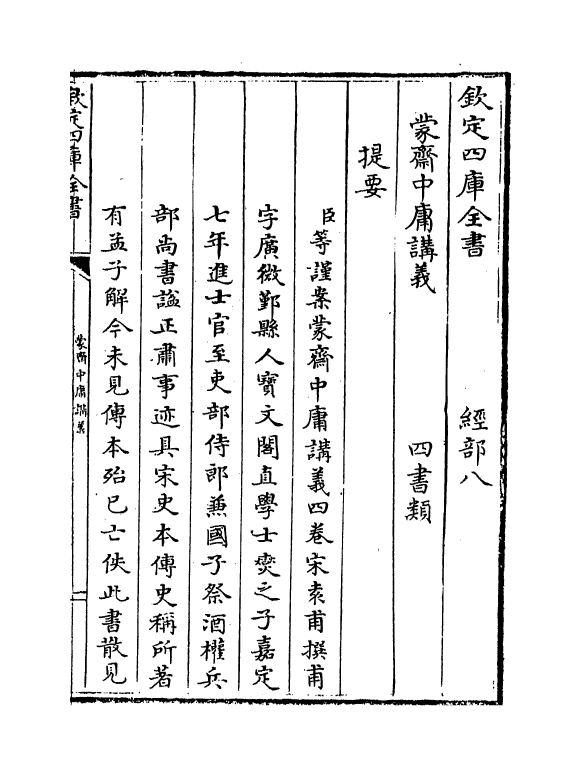 欽定四庫全書　經部八
蒙齋中庸講義　四書類
提要
臣等謹案蒙齋中庸講義四卷宋袁甫撰甫
字廣微鄞縣人寶文閣直學士燮之子嘉定
七年進士官至吏部侍郎兼國子祭酒權兵
部尚書謚正肅事迹具宋史本傳史稱所著
有孟子解今未見傳本殆已亡佚此書散見
欽定四庫全書
蒙齋中庸講義
一